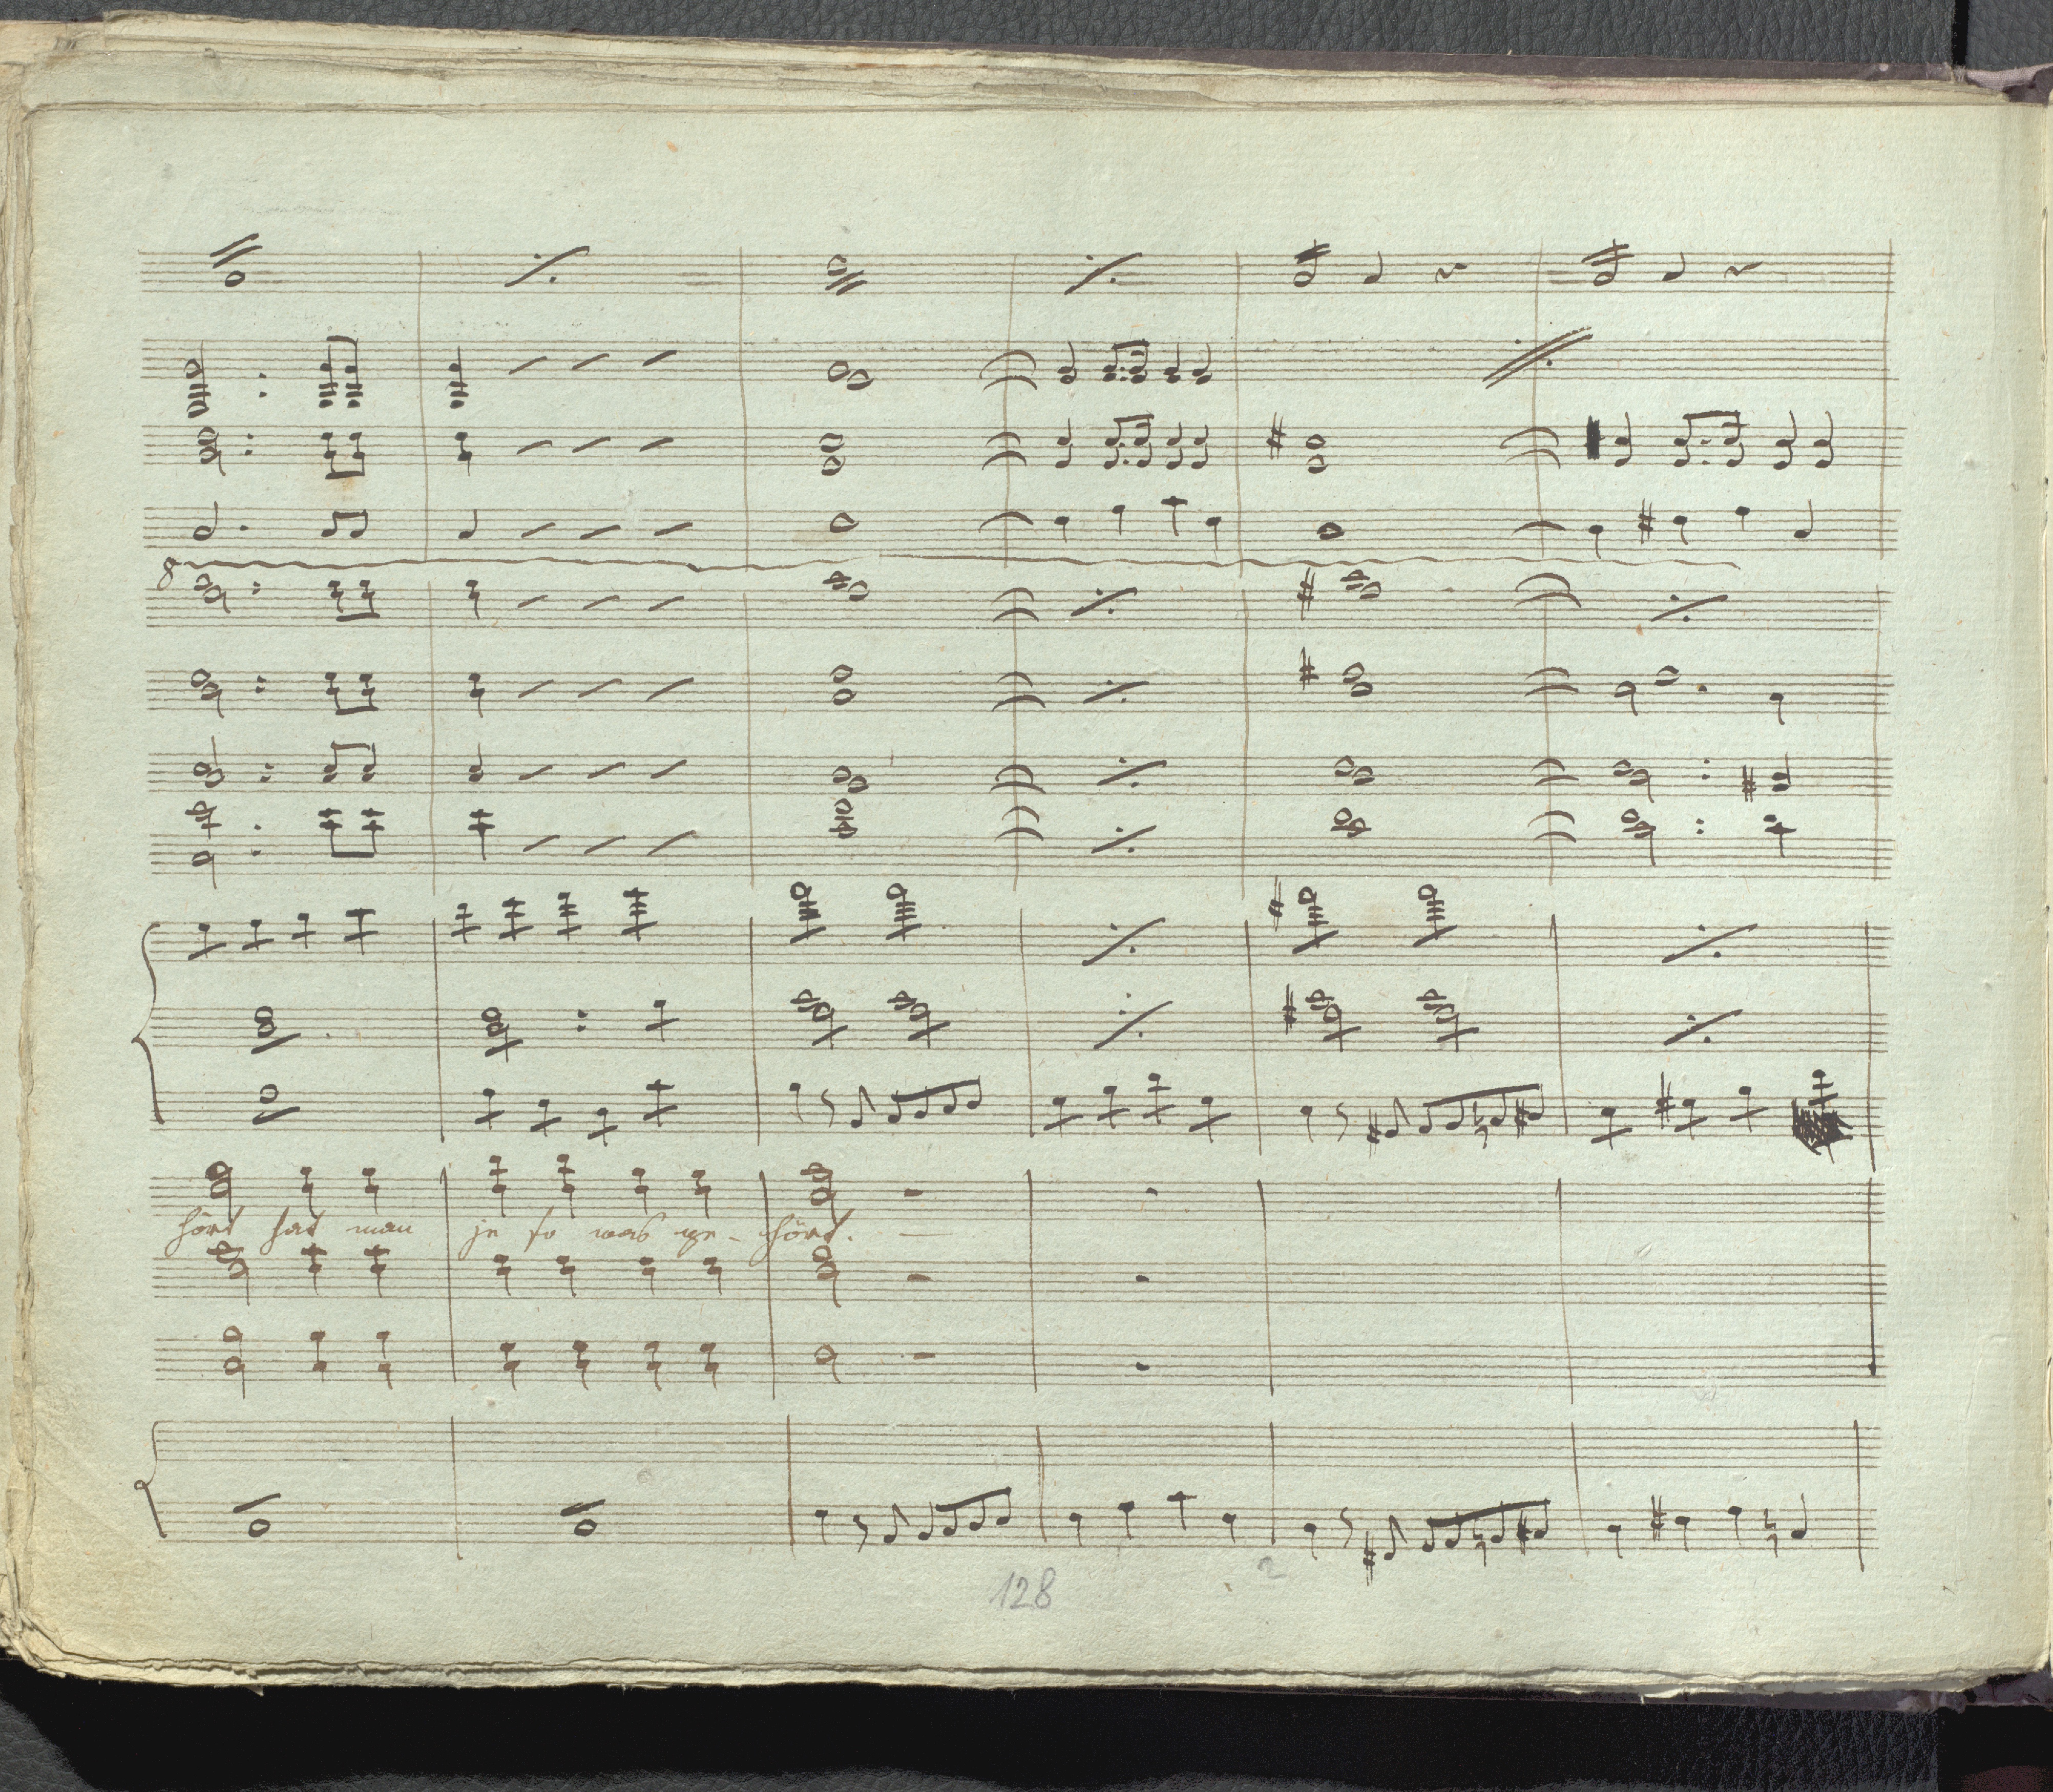 8
hört hat man je so was ge- hört.
128
2